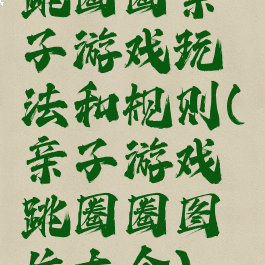 跳圈圈亲
子游戏玩
法和规则(
亲子游戏
跳圈圈图
片大全)